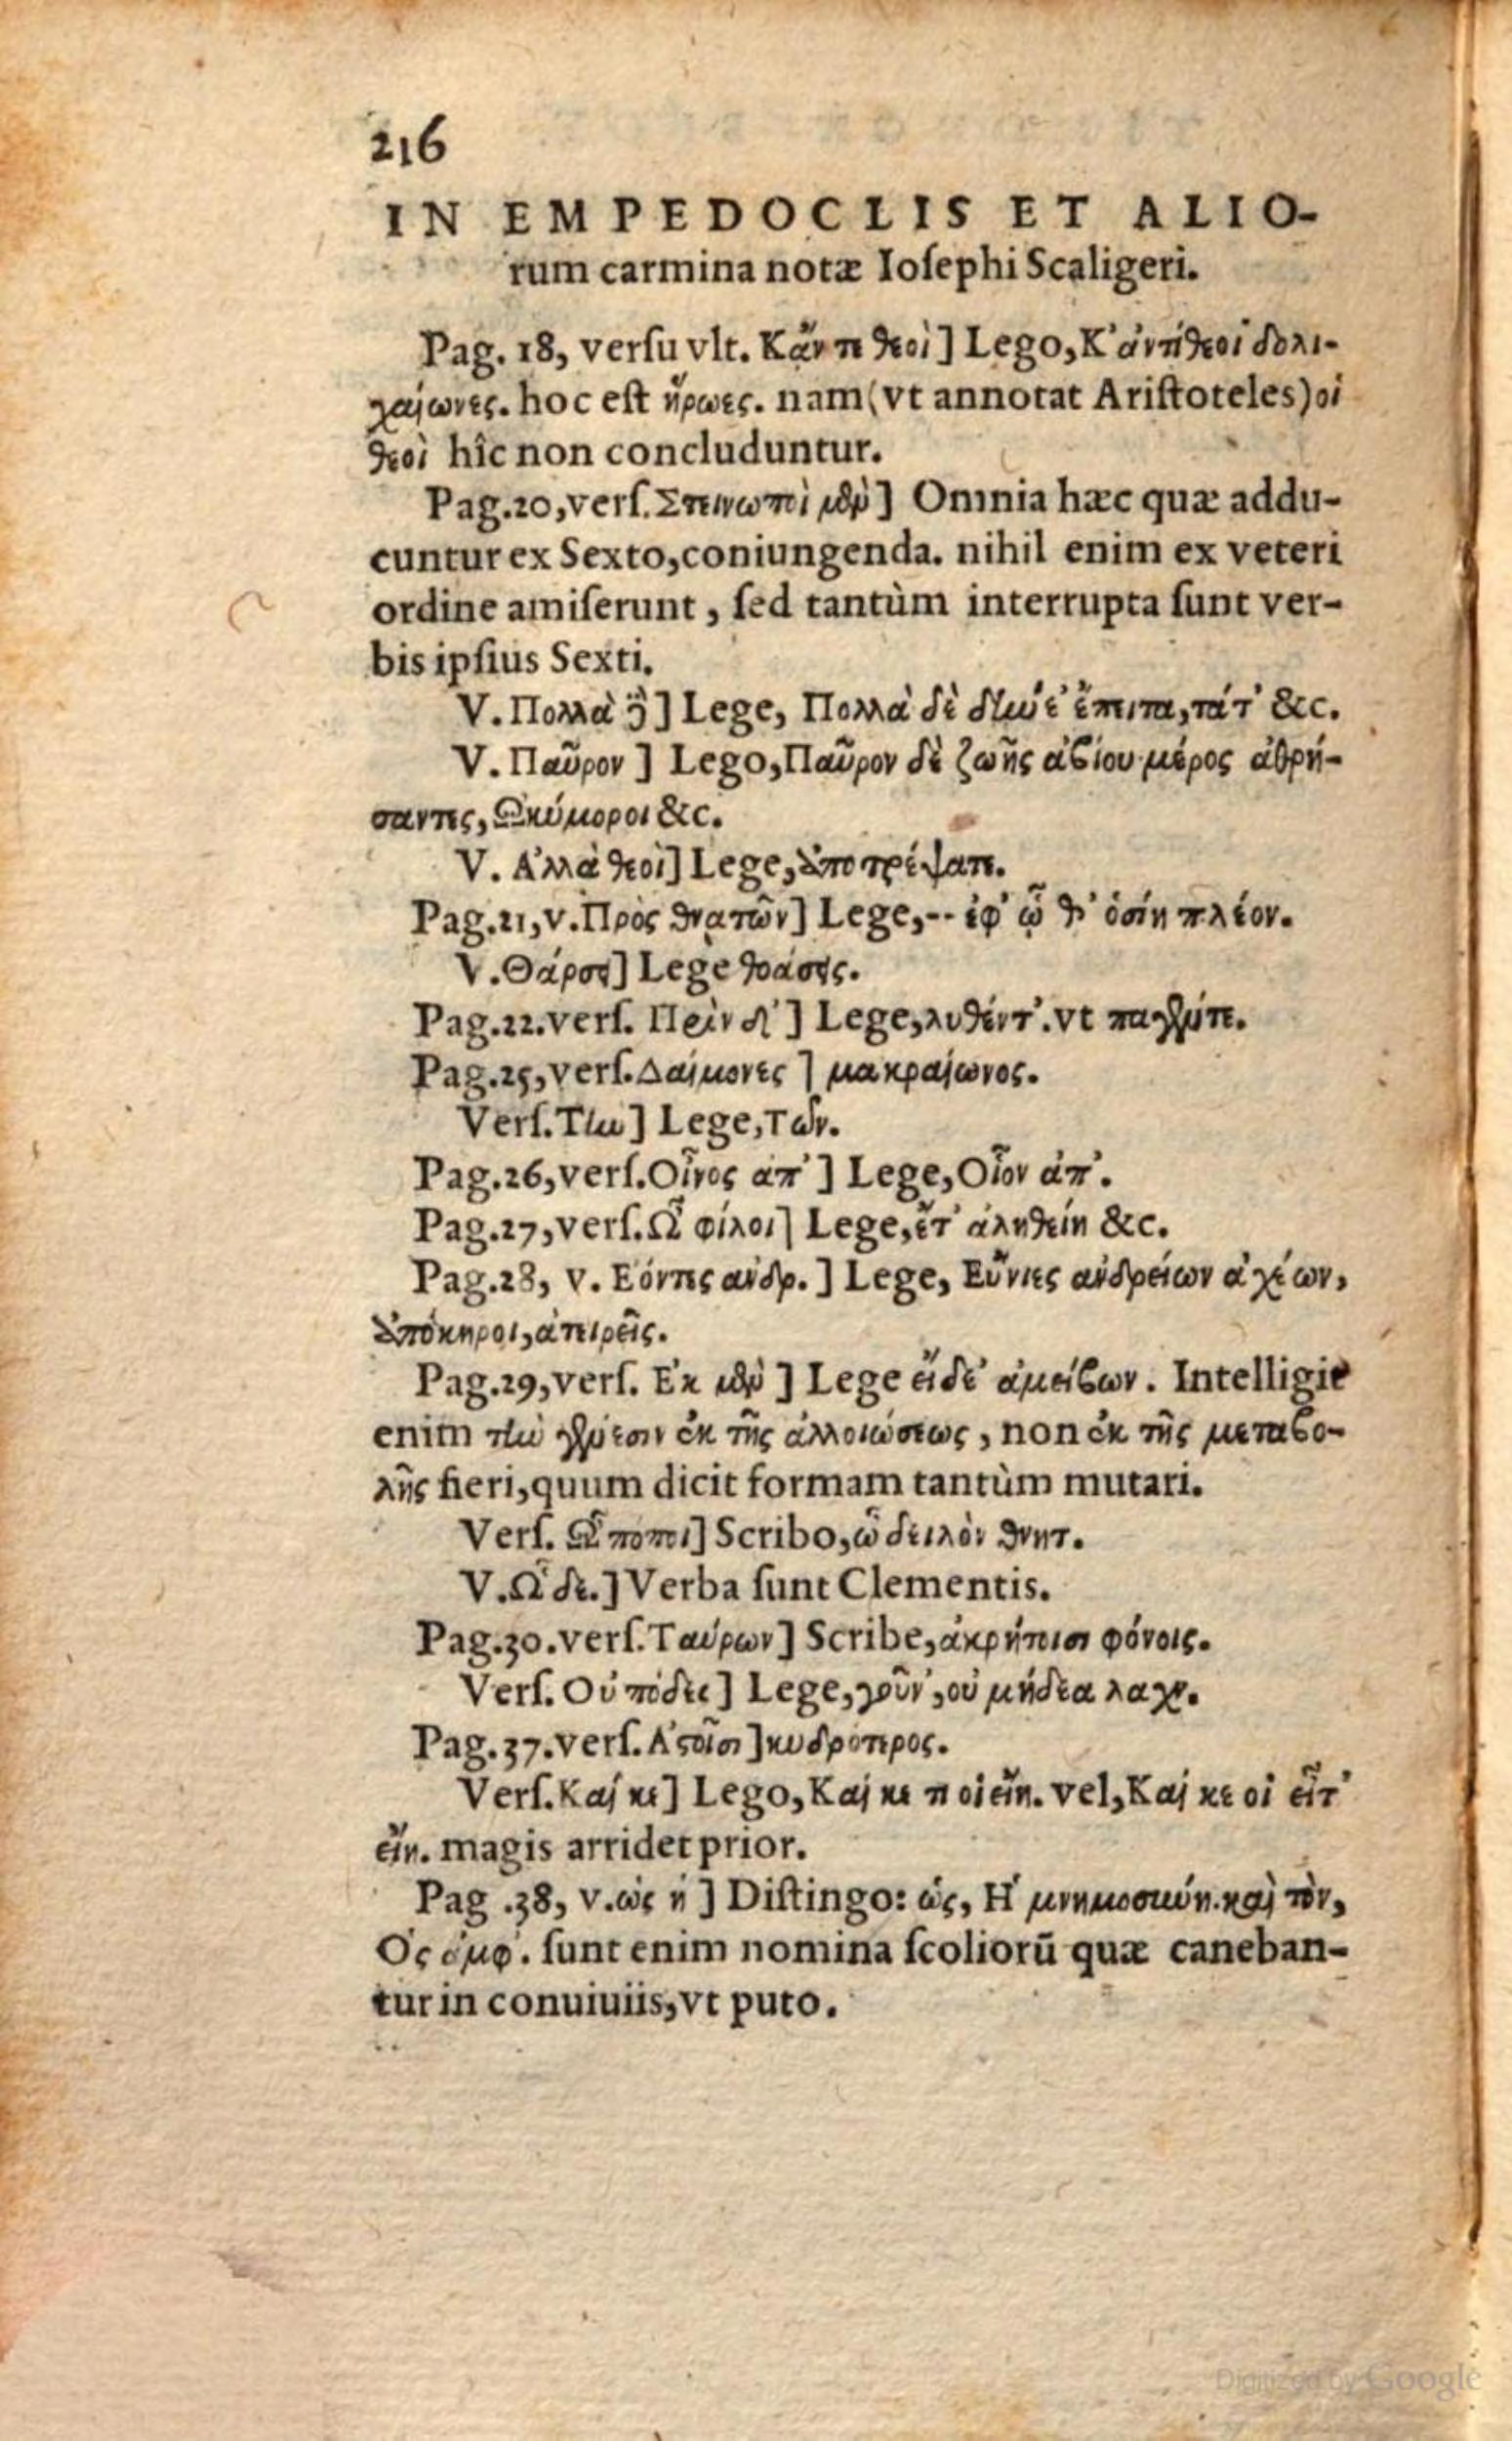 216
IN EMPEDOCLIS ET ALIO-
rum carmina notæ Ioſephi Scaligeri.
Pag. 18, verſu vlt. Κἄν τε θεοὶ] Lego, Κ' ἀντίθεοι δολι-
χαίωνες. hoc eſt ἥρωες. nam (vt annotat Ariſtoteles) οἱ
θεοὶ hîc non concluduntur.
Pag.20, verſ. Στεινωποὶ μὲν] Omnia hæc quæ addu-
cuntur ex Sexto, coniungenda. nihil enim ex veteri
ordine amiſerunt, ſed tantùm interrupta ſunt ver-
bis ipſius Sexti.
V. Πολλὰ δὲ] Lege, Πολλὰ δὲ &c.
V. Παῦρον] Lego, Παῦρον δὲ ζωῆς ἀβίου μέρος ἀθρή-
σαντες, Ὠκύμοροι &c.
V. Ἀλλὰ θεοὶ] Lege, ἀποτρέψατε.
Pag.21, v. Πρὸς θνατῶν] Lege, -- ἐφ' ᾧ θ' ὁσίη πλέον.
V. Θάρσει] Lege θοάσεις.
Pag.22. verſ. Πρὶν δ'] Lege, λυθέντ'. vt παγέντε.
Pag.25, verſ. Δαίμονες] μακραίωνος.
Verſ. Τὴν] Lege, Τῶν.
Pag.26, verſ. Οἶνος ἀπ'] Lege, Οἶον ἀπ'.
Pag.27, verſ. Ὦ φίλοι] Lege, ἔτ' ἀληθείη &c.
Pag.28, v. Ἐόντες ανδρ.] Lege, Εὔνιες ανδρείων ἀχέων,
ἀπόκηροι, ἀτειρεῖς.
Pag.29, verſ. Ἐκ μὲν] Lege εἴδε' ἀμείβων. Intelligit
enim τὴν γένεσιν ἐκ τῆς ἀλλοιώσεως, non ἐκ τῆς μεταβο-
λῆς fieri, quum dicit formam tantùm mutari.
Verſ. Ὢ πόποι] Scribo, ὦ δειλὸν θνητ.
V. Ὧδε.] Verba ſunt Clementis.
Pag.30. verſ. Ταύρων] Scribe, ἀκρήτοισι φόνοις.
Verſ. Οὐ πόδες] Lege, γοῦν', οὐ μήδεα λαχν.
Pag.37. verſ. Ἀστοῖσι] κυδρότερος.
Verſ. Καί κε] Lego, Καί κε τι οἱ εἴη. vel, Καί κε οἱ εἶτ'
εἴη. magis arridet prior.
Pag .38, v. ὡς ἡ] Diſtingo: ὡς, Ἡ μνημοσύνη. καὶ τὸν,
Ὃς ἀμφ'. ſunt enim nomina ſcoliorū quæ caneban-
tur in conuiuiis, vt puto.
Digitized by Google